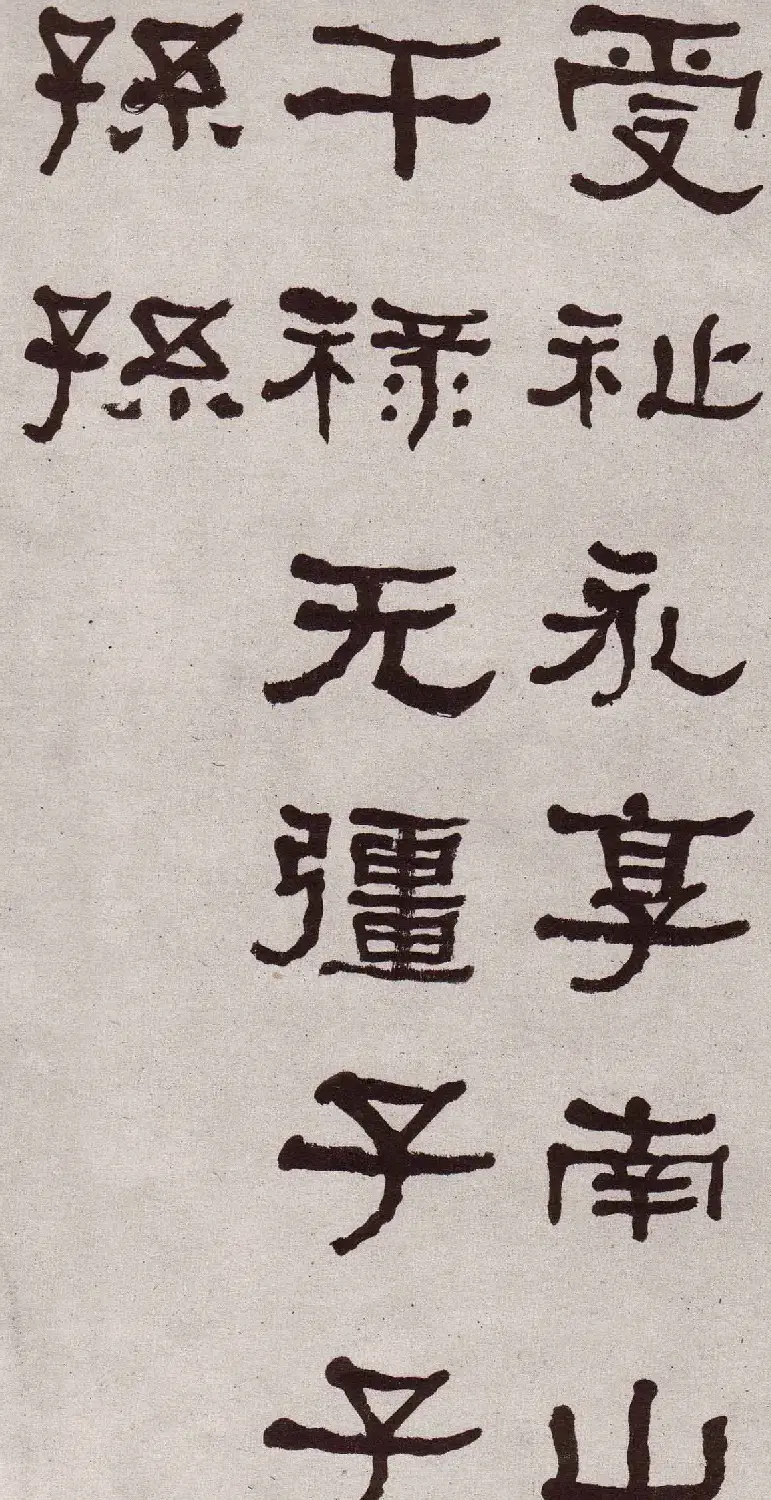 受祉永享南山
干禄无彊子子
孫孫